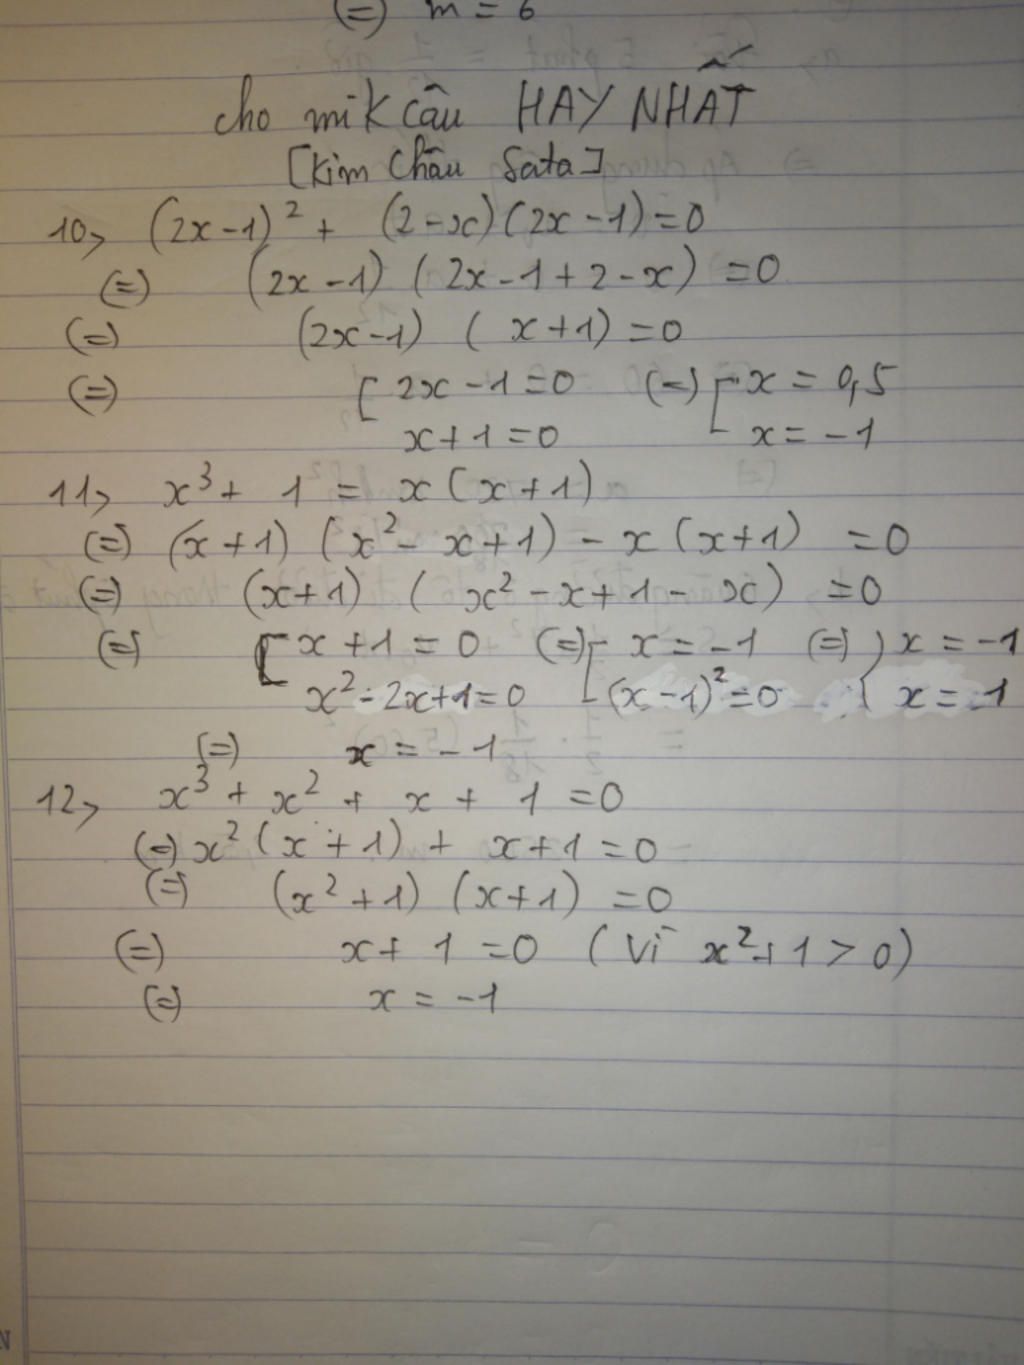 (=) m = 6
cho mik câu HAY NHẤT
[Kim Châu Sata]
10, (2x-1)² + (2-x)(2x-1)=0
(=) (2x-1) (2x-1+2-x) =0
(=) (2x-1) (x+1)=0
(=) [ 2x-1=0 (=) [ x = 0,5
x+1=0 x=-1
11, x³+ 1 = x(x+1)
(=) (x+1) (x²-x+1) - x(x+1) =0
(=) (x+1) (x²-x+1-x) =0
(=) [ x+1=0 (=) [ x=-1 (=) } x=-1
x²-2x+1=0 (x-1)²=0 x=1
(=) x = -1
12, x³ + x² + x + 1 =0
(=) x²(x+1) + x+1=0
(=) (x²+1) (x+1) =0
(=) x+ 1 =0 (Vì x²+1 > 0)
(=) x = -1